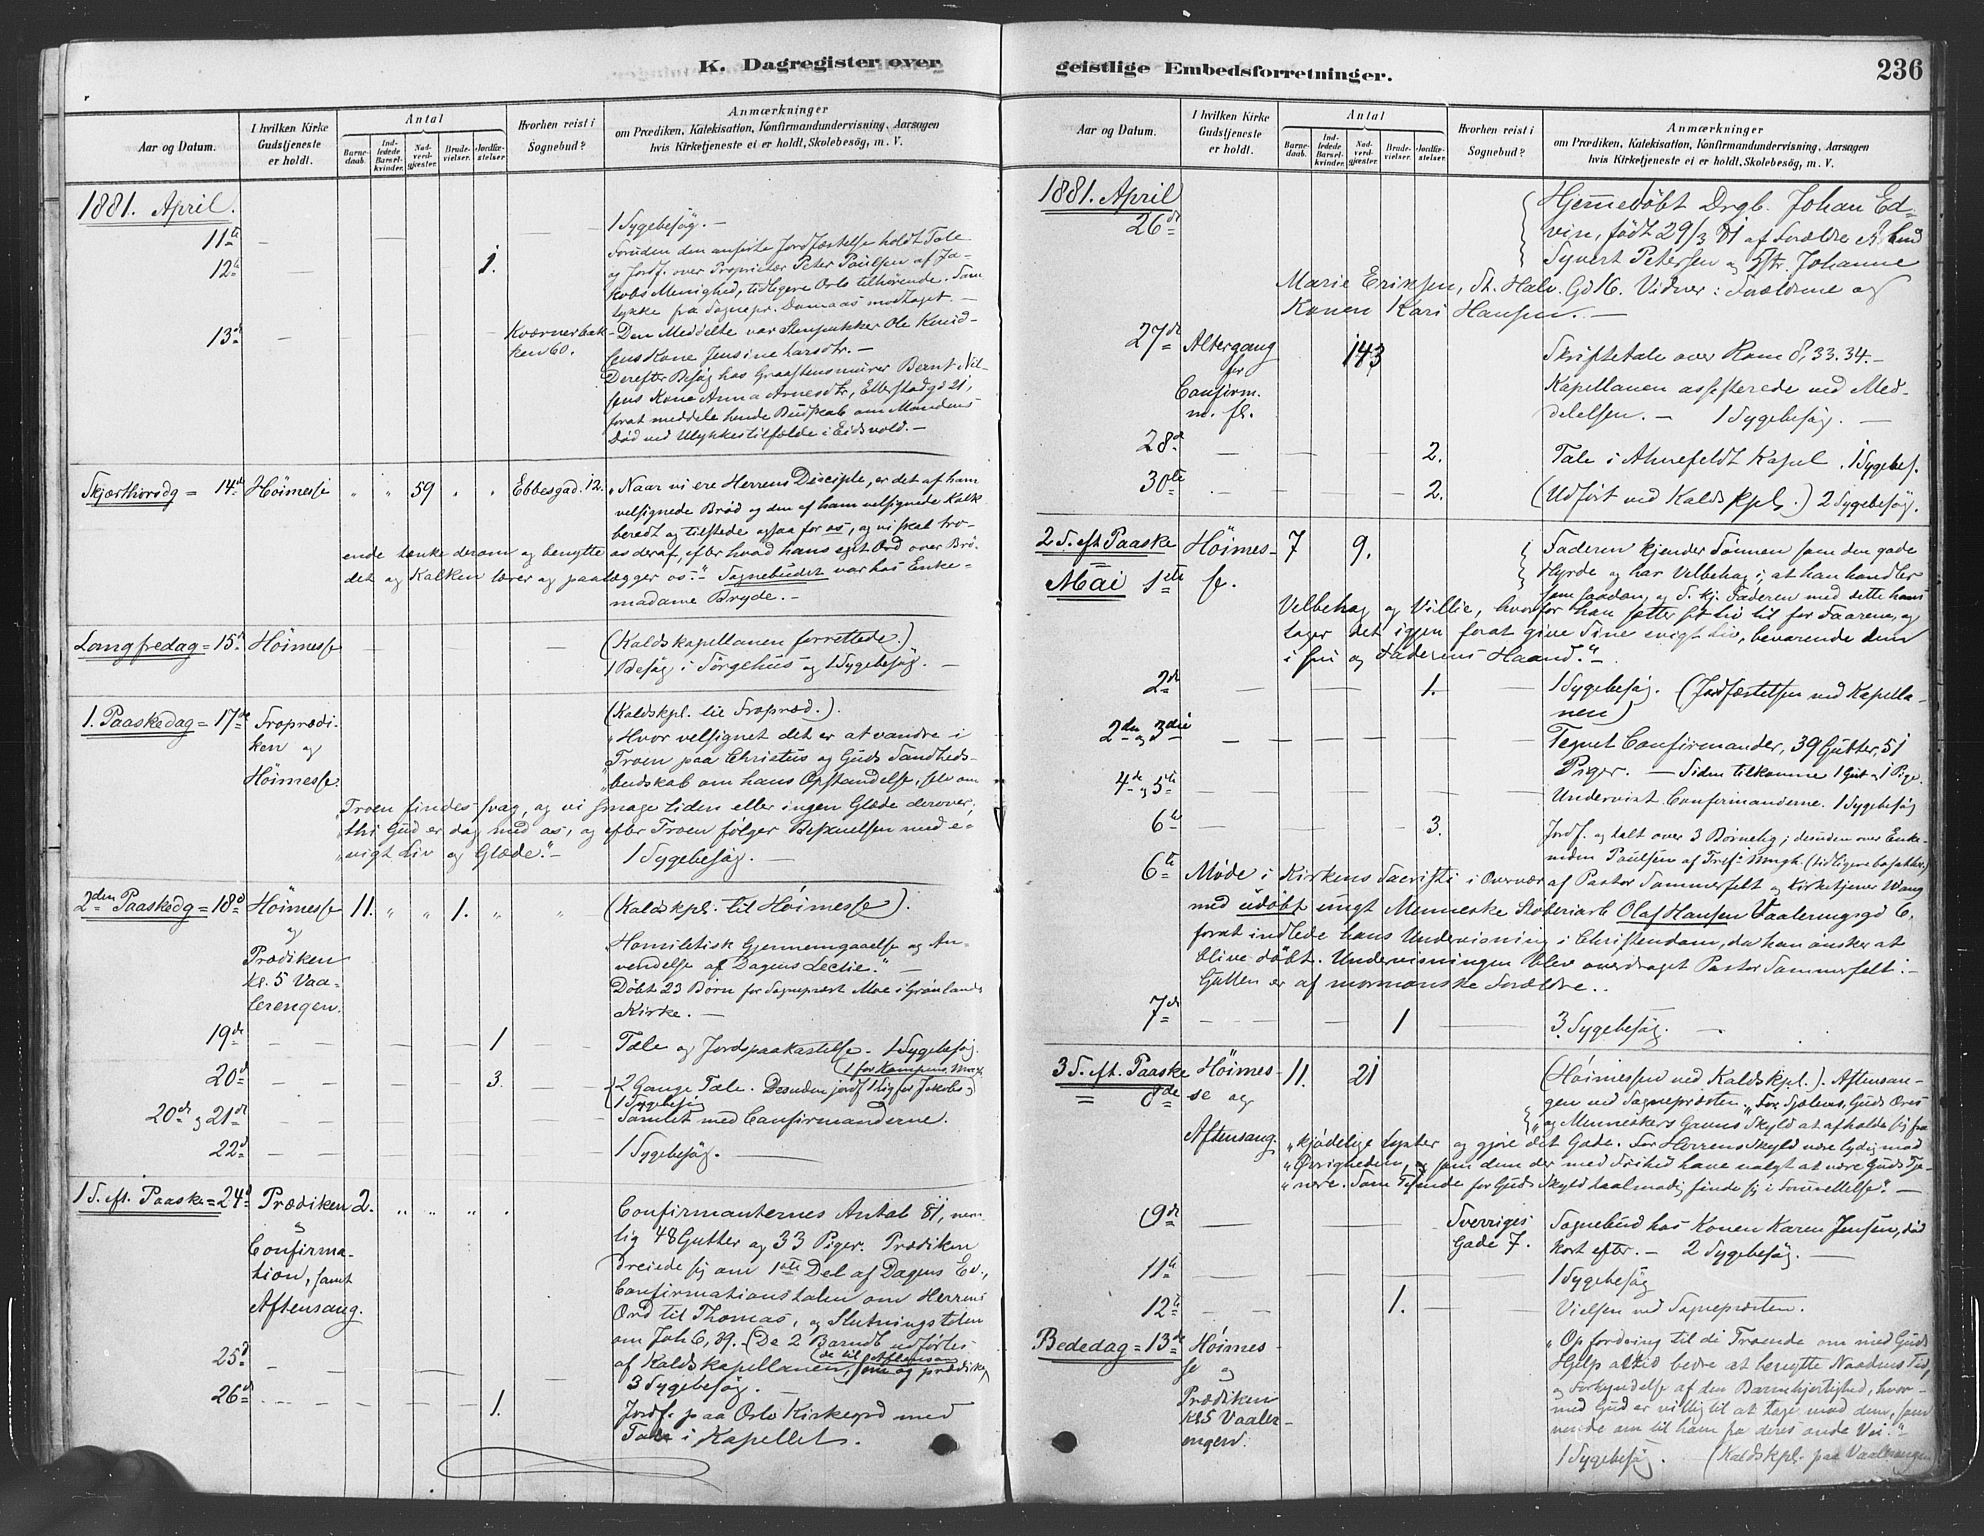 K. Dagregister over
Aar og Datum.
I hvilken Kirke Gudstjeneste er holdt.
Antal
Barnedaab.
Indledede Barselkvinder.
Nadverdgjæster.
Brudevielser.
Jordfæstelser
Hvorhen reist i Sognebud?
Anmærkninger
om Prædiken, Katekisation, Konfirmandundervisning, Aarsagen
hvis Kirketjeneste ei er holdt, Skolebesøg, m. V.
1881. April.
11te
1 Sygebesøg. —
12te 1. Foruden den anførte Jordfæstelse holdt Tale
og Jordf. over Proprietær Peter Paulsen af Ja-
kobs Menighed, tidligere Oslo tilhørende.
tykke fra Sognepr. modtaget. —
13de Kværnerbak-
ken 60.
Den Meddelte var Stenpukker Ole Knud-
sens Kone Jensine Larsdtr. —
Derefter Besøg hos Graastensmurer Bernt Nil-
sens Kone Anna Arnesdtr, Eberstadgd 21,
forat meddele hende Budskab om Mandens
Død ved Ulykkestilfælde i Eidsvold. —
Skjærthorsdg = 14de Høimesse " " 59 " " Ebbesgad. 12. "Naar vi ere Herrens Disciple, er det af ham
velsignede Brød og den af ham velsignede Kalk
beredt og tilstede ogsaa for os, og vi skal tro-
ende tænke derom og benytte os deraf, efter hvad hans eget Ord over Brø-
det og Kalken lærer og paalægger os." Sognebudet var hos Enke-
madame Bryde. —
Langfredag = 15de Høimesse — (Kaldskapellanen forrettede.)
1 Besøg i Sørgehus og 1 Sygebesøg. —
1. Paaskedag = 17de Froprædi-
ken og
Høimesse.
(Kaldskpl. til Fropræd.)
"Hvor velsignet det er at vandre i
Troen paa Christus og Guds Sandheds-
budskab om hans Opstandelse, selv om
Troen findes svag, og vi smage liden eller ingen Glæde derover,
thi Gud er dog med os, og efter Troen følger Beskuelsen med e-
vigt Liv og Glæde." —
1 Sygebesøg. —
2den Paaskedg = 18de Høimesse 11. " " 1. " " (Kaldskpl. til Høimesse).
og
Prædiken
kl. 5 Vaa-
lerengen.
Homiletisk Gjennemgaaelse og An-
vendelse af Dagens Lectie." —
Døbt 23 Børn for Sognepræst Moe i Grønlands
Kirke. —
19de 1 Tale og Jordspaakastelse. 1 Sygebesøg.
20de 3. (1 for Kampens Mngh.
2 Gange Tale. Desuden jordf. 1 Lig for Jakobs)
1 Sygebesøg
20de og 21de Samlet med Confirmanderne.
22de 1 Sygebesøg. —
1 S. eft. Paaske = 24de Prædiken 2. " " " "
Confirma-
tion, samt
Aftensang.
Confirmanternes Antal 81, nem-
lig 48 Gutter og 33 Piger. Prædiken
dreiede sig om 1ste Del af Dagens Ev.,
Confirmationstalen om Herrens
Ord til Thomas, og Slutningstalen
om Joh 6, 39. (De 2 Barnd. udførtes
af Kaldskapellanen, de til Aftensang som og prædik.)
25de 3 Sygebesøg. —
26de 1. Jordf. paa Oslo Kirkegrd med
Tale i Kapellet.
geistlige Embedsforretninger.
236
Aar og Datum.
I hvilken Kirke Gudstjeneste er holdt.
Antal
Barnedaab.
Indledede Barselkvinder.
Nadverdgjæster.
Brudevielser.
Jordfæstelser.
Hvorhen reist i Sognebud?
Anmærkninger
om Prædiken, Katekisation, Konfirmandundervisning, Aarsagen
hvis Kirketjeneste ei er holdt, Skolebesøg, m. V.
1881. April
26de Hjemmedøbt Drgb. Johan Ed-
vin, født 29/3 81 af Forældre
Syvert Petersen og Hstr. Johanne
Marie Eriksen, St. Halv. Gd 16. Vidner: Forældrene og
Konen Kari Hansen. —
27de Altergang
for
Confirm.
m. fl.
143
Skriftetale over Rom 8, 33.34. —
Kapellanen assisterede ved Med-
delelsen. — 1 Sygebesøg. —
28de 2. Tale i Ahnefeldt Kapel. 1 Sygebes.
30te 2. (Udført ved Kaldskpl.) 2 Sygebesøg.
2 S. eft Paaske Høimes- 7 9. Faderen kjender Sønnen som den gode
Mai 1ste se. Hyrde og har Velbehag i, at han handler
som saadan, og S. kj. Faderen med dette hans
Velbehag og Villie, hvorfor han sætter sit Liv til for Faarene, og
tager det igjen forat give Sine evigt Liv, bevarende dem
i sin og Faderens Haand." —
2de 1. 1 Sygebesøg. (Jordfæstelsen ved Kapella-
nen)
2den og 3die Tegnet Confirmander, 39 Gutter, 51
Piger. — Siden tilkomne 1 Gut og 1 Pige.
4de og 5te Undervist Confirmanderne. 1 Sygebesøg
6te 3. Jordf. og talt over 3 Børnelig; desuden over Enke-
mden Paulsen af Tref. Mngh. (tidligere bosat her)
6te Møde i Kirkens Sacristi i Overvær af Pastor Sommerfelt og Kirketjener Wang
med udøbt ungt Menneske Støberiarb. Olaf Hansen Vaaleringsgd 6,
forat indlede hans Undervisning i Christendom, da han ønsker at
blive døbt. Undervisningen blev overdraget Pastor Sommerfelt. —
Gutten er af mormonske Forældre..
7de 1 3 Sygebesøg. —
3 S. eft. Paaske Høimes- 11. 21 (Høimessen ved Kaldskpl.). Aftensan-
8de se og gen ved Sognepræsten. "For Sjælens, Guds Æres
Aftensang. og Menneskers Gavns Skyld at afholde sig fra
"kjødelige Lyster og gjøre det Gode. For Herrens Skyld være lydig mod
"Øvrigheden, og som dem der med Frihed have valgt at være Guds Tje-
"nere. Som Tjenende for Guds Skyld taalmodig finde sig i Forurettelse". —
9de Sverriges
Gade 7.
Sognebud hos Konen Karen Jensen, død
kort efter. — 2 Sygebesøg. —
11te 1 Sygebesøg
12te 1. Vielsen ved Sognepræsten.
Bededag = 13de Høimes-
se og
Prædiken
Kl 5 Vaaler-
engen.
"Opfordring til de Troende om med Guds
Hjelp altid bedre at benytte Naadens Tid,
og Forkyndelse af den Barmhjertighed, hvor-
med Gud er villig til at tage mod dem, som
vende om til ham fra deres onde Vei."
1 Sygebesøg. (Kaldskpl. paa Vaalerengen)